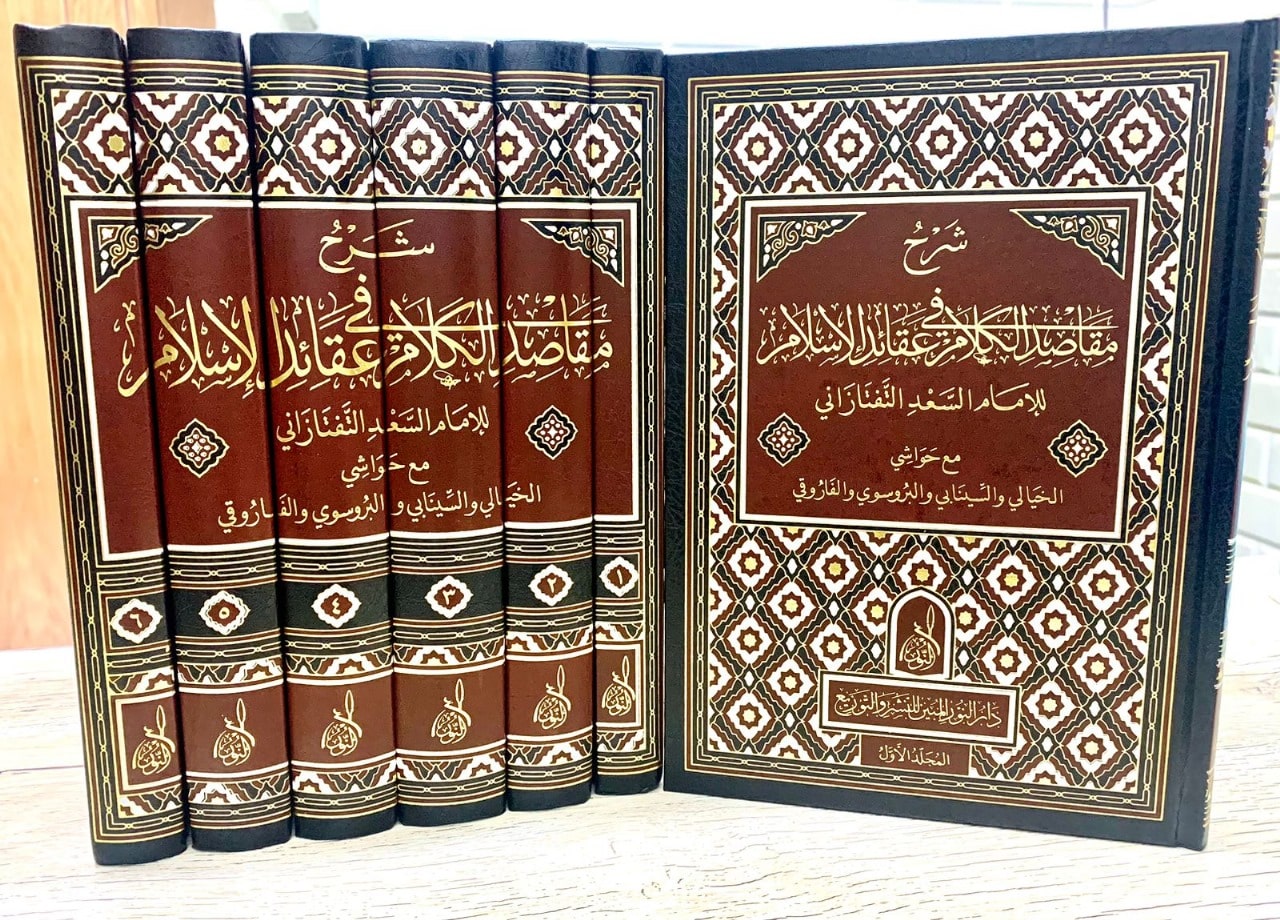 شَرْحُ
مَقَاصِدِ الكَلَامِ فِي عَقَائِدِ الإِسْلَامِ
لِلإمَام السَّعْدِ التَّفْتَازَاني
مع حَوَاشِي
الخيَالي والسِّينَابي والبُروسَوي والفَارُوقي
٦
٥
٤
٣
٢
١
النور
النور
النور
النور
النور
النور
شَرْحُ
مَقَاصِدِ الكَلَامِ فِي عَقَائِدِ الإِسْلَامِ
لِلإمَام السَّعْدِ التَّفْتَازَاني
مع حَوَاشِي
الخيَالي والسِّينَابي والبُروسَوي والفَارُوقي
النور
دَارُ النُّورِ المُبِين لِلنَّشْرِ وَالتَّوزِيْع
المُجَلَّدُ الأوَّلُ